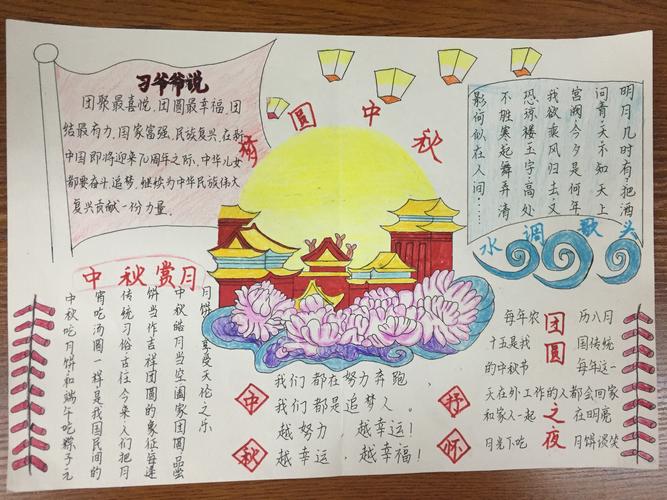 习爷爷说
团聚最喜悦,团圆最幸福,团
结最有力。国家富强,民族复兴,在新
中国即将迎来70周年之际,中华儿女
都要奋斗、追梦,继续为中华民族伟大
复兴贡献一份力量。
圆中秋
明月几时有,把酒
问青天,不知天上
宫阙,今夕是何年
我欲乘风归去,又
恐琼楼玉宇,高处
不胜寒,起舞弄清
影,何似在人间……
水调歌头
中秋赏月
中秋吃月饼和端午吃粽子元
宵吃汤圆一样是我国民间的
传统习俗古往今来人们把月
饼当作吉祥团圆的象征每逢
中秋皓月当空阖家团圆品尝
月饼 享受天伦之乐
中秋
我们都在努力奔跑,
我们都是追梦人。
越努力 越幸运!
越幸运 越幸福!
抒怀
团圆之夜
每年农 历八月
十五是我 国传统
的中秋节 每年这一
天在外工作的人都会回家
和家人一起 在明亮
月光下吃 月饼谈笑